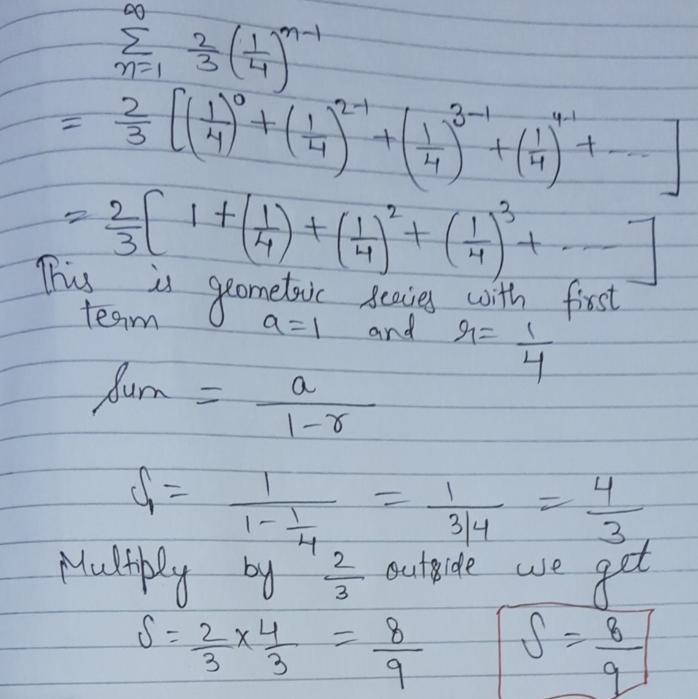 ∞
∑ 2/3 (1/4)^(n-1)
n=1
= 2/3 [(1/4)^0 + (1/4)^(2-1) + (1/4)^(3-1) + (1/4)^(4-1) + ....]
= 2/3 [ 1 + (1/4) + (1/4)^2 + (1/4)^3 + ..... ]
This is geometric series with first
term a=1 and r= 1/4
Sum = a/(1-r)
S₁ = 1/(1-1/4) = 1/(3/4) = 4/3
Multiply by 2/3 outside we get
S = 2/3 × 4/3 = 8/9 S = 8/9